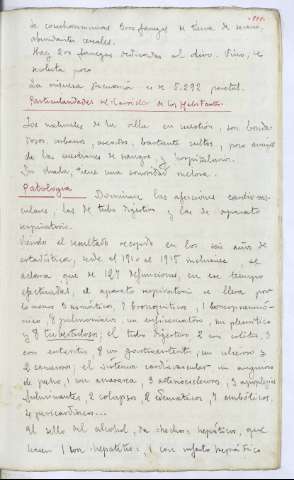 Se
abundantes cereales.
Hay 200 fanegas dedicadas al olivo. Vino, se
poco
La riqueza Pecuaria es de 5.292 pesetas.
Particularidades del carácter de los habitantes.
Los naturales de la villa en cuestión, son bonda-
dosos, urbanos, aseados, bastante cultos, poco amigos
de las cuestiones de sangre, y hospitalarios.
Sin duda, tiene una sonoridad
Patología Dominan las afecciones cardio-vas-
culares, las de tubo digestivo y las de aparato
respiratorio.
Viendo el resultado recogido en los seis años de
estadística, desde el 1910 al 1915 inclusive, se
aclara que de 127 defunciones en ese tiempo
efectuadas, el aparato respiratorio se lleva por
lo menos 3 asmáticos, 7 bronquíticos, 1 bronconeumó-
nico, 8 pulmoníacos, un enfisematoso, un pleurítico
y 8 tuberculosos; el tubo digestivo 2 con colitis, 3
con enteritis, 8 con gastroenteritis, un ulceroso y
2 cancerosos; el sistema cardiovascular un anginoso
de pecho, 1 con anasarca, 3 arterioesclerosos, 3 apoplegías
fulminantes, 2 colapsos, 2 edemáticos, 7 embólicos,
4 pericardíacos...
Al sello del alcohol, da hechos hepáticos, que
hacen 1 con hepatitis; 1 con infarto hepático